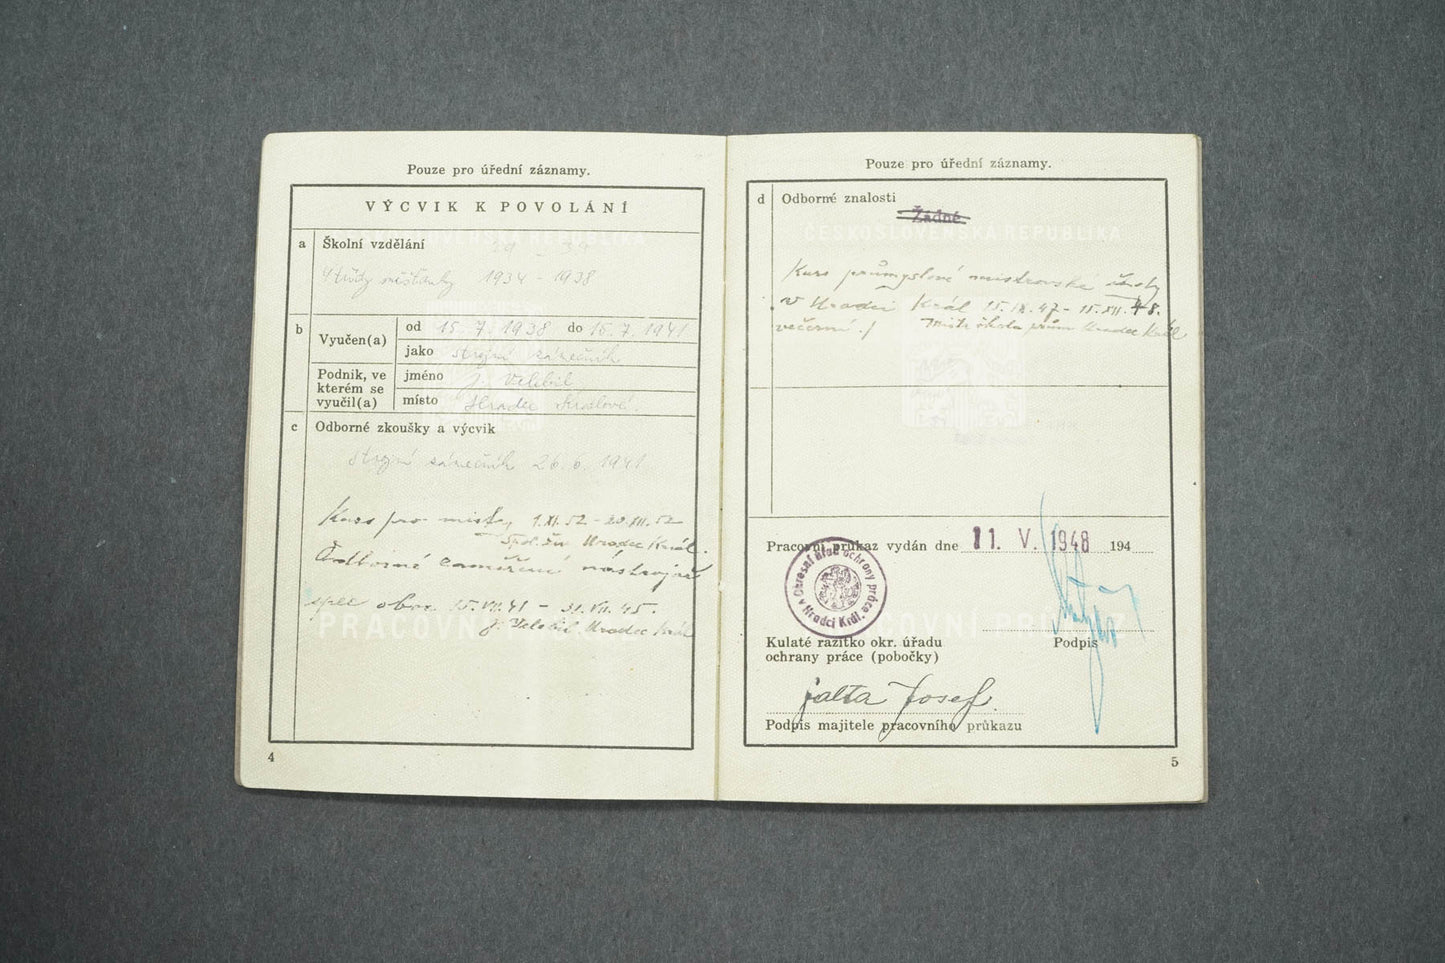 Pouze pro úřední záznamy.
VÝCVIK K POVOLÁNÍ
a Školní vzdělání
ČESKOSLOVENSKÁ REPUBLIKA
1934 - 1938
b Vyučen(a)
od 15. 7. 1938 do 15. 7. 1941
jako strojní zámečník
Podnik, ve kterém se vyučil(a)
jméno J. Velebil
místo Hradec Králové.
c Odborné zkoušky a výcvik
strojní zámečník 26. 6. 1941
Kurs pro mistry 1.XI.52 - 20.XII.52
Hradec Král.
Odborné zaměření nástrojař
spec obor 15.VII.41 - 31.VII.45.
J. Velebil Hradec Král
PRACOVNÍ PRŮKAZ
4
Pouze pro úřední záznamy.
d Odborné znalosti
Žádné
ČESKOSLOVENSKÁ REPUBLIKA
Kurs průmyslové mistrovské školy
v Hradci Král 15.IX.47 - 15.XII.48.
večerní / škola prům Hradec Král
Pracovní průkaz vydán dne 11. V. 1948 194
Okresní úřad ochrany práce v Hradci Král.
PRACOVNÍ PRŮKAZ
Kulaté razítko okr. úřadu Podpis
ochrany práce (pobočky)
Jalta Josef.
Podpis majitele pracovního průkazu
5